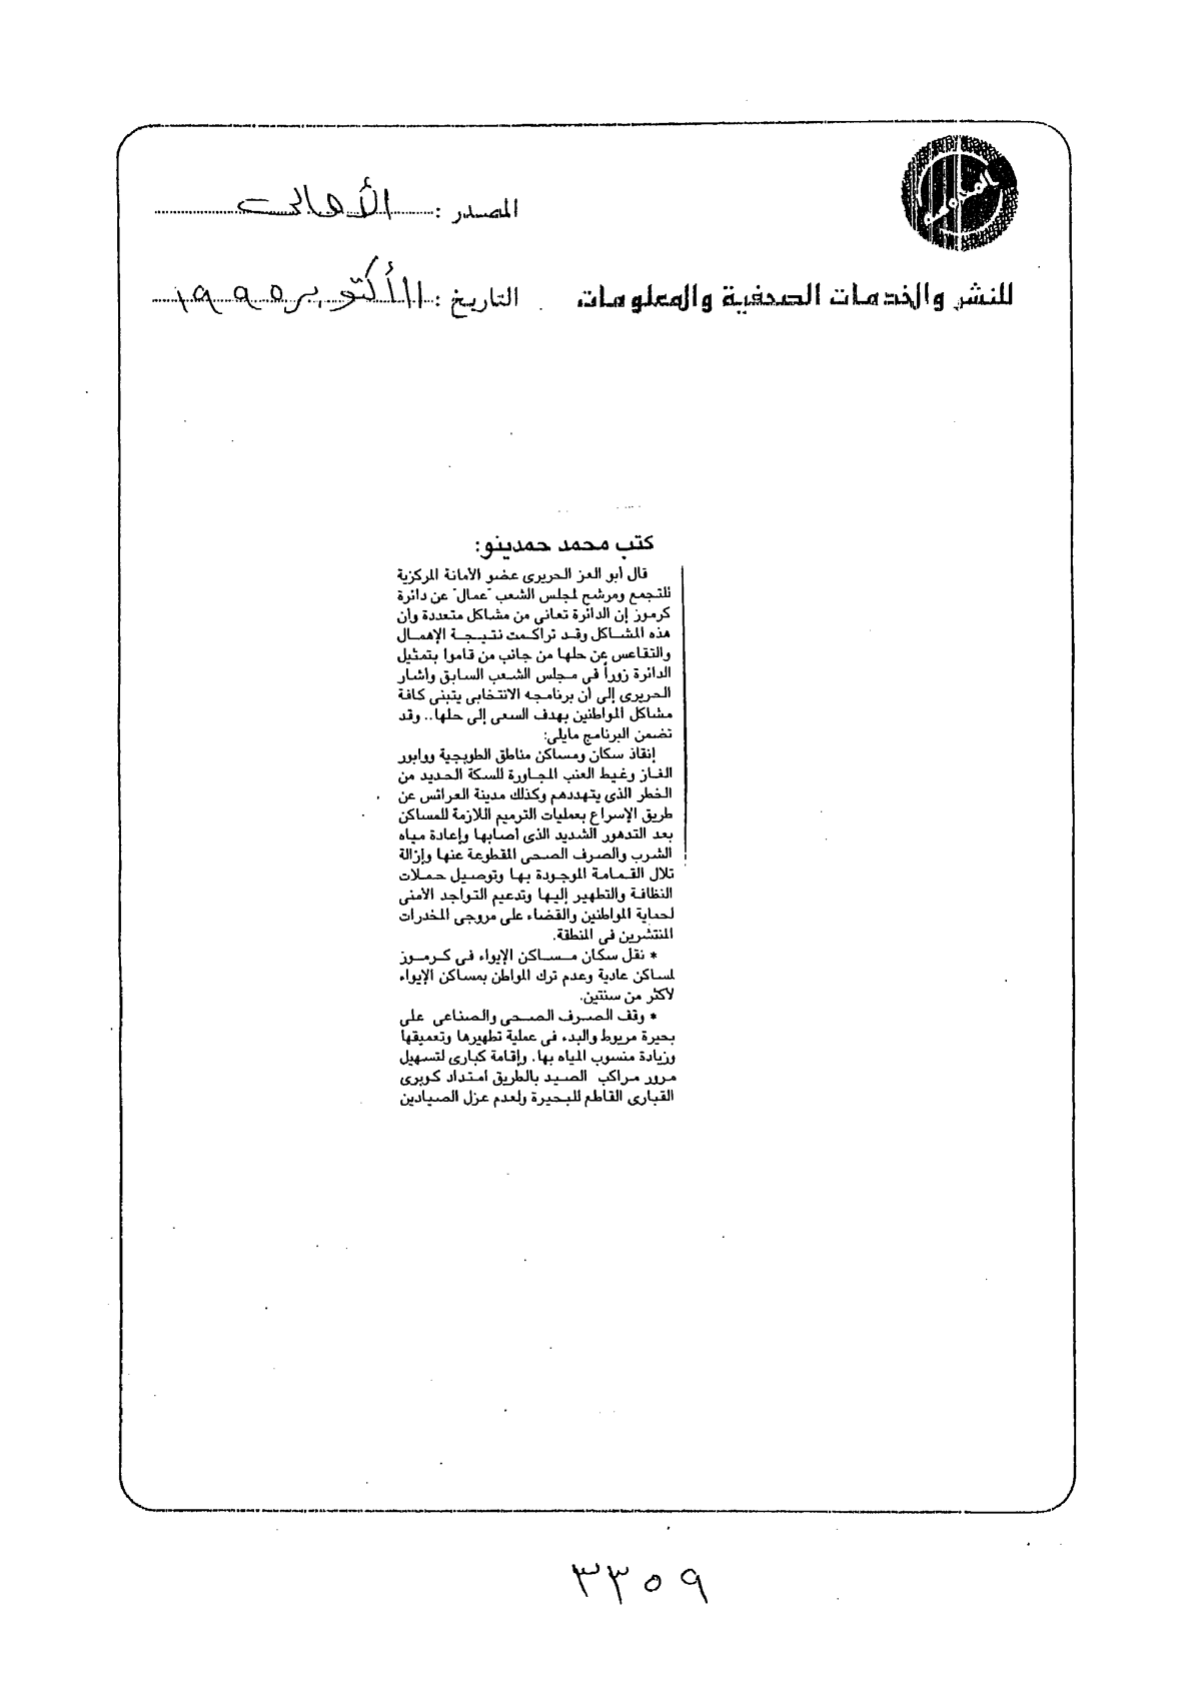 المصدر : الأهالى
للنشر والخدمات الصحفية والمعلومات
التاريخ : ١١ أكتوبر ١٩٩٥
كتب محمد حمدينو:
قال أبو العز الحريرى عضو الأمانة المركزية
للتجمع ومرشح لمجلس الشعب "عمال" عن دائرة
كرموز إن الدائرة تعانى من مشاكل متعددة وأن
هذه المشاكل وقد تراكمت نتيجة الإهمال
والتقاعس عن حلها من جانب من قاموا بتمثيل
الدائرة زوراً فى مجلس الشعب السابق وأشار
الحريرى إلى أن برنامجه الانتخابى يتبنى كافة
مشاكل المواطنين بهدف السعى إلى حلها.. وقد
تضمن البرنامج مايلى:
إنقاذ سكان ومساكن مناطق الطوبجية ووابور
الغاز وغيط العنب المجاورة للسكة الحديد من
الخطر الذى يتهددهم وكذلك مدينة العرائس عن
طريق الإسراع بعمليات الترميم اللازمة للمساكن
بعد التدهور الشديد الذى أصابها وإعادة مياه
الشرب والصرف الصحى المقطوعة عنها وإزالة
تلال القمامة الموجودة بها وتوصيل حملات
النظافة والتطهير إليها وتدعيم التواجد الأمنى
لحماية المواطنين والقضاء على مروجى المخدرات
المنتشرين فى المنطقة.
* نقل سكان مساكن الإيواء فى كرموز
لمساكن عادية وعدم ترك المواطن بمساكن الإيواء
لأكثر من سنتين.
* وقف الصرف الصحى والصناعى على
بحيرة مريوط والبدء فى عملية تطهيرها وتعميقها
وزيادة منسوب المياه بها. وإقامة كبارى لتسهيل
مرور مراكب الصيد بالطريق امتداد كوبرى
القبارى القاطع للبحيرة ولعدم عزل الصيادين
٣٣٥٩